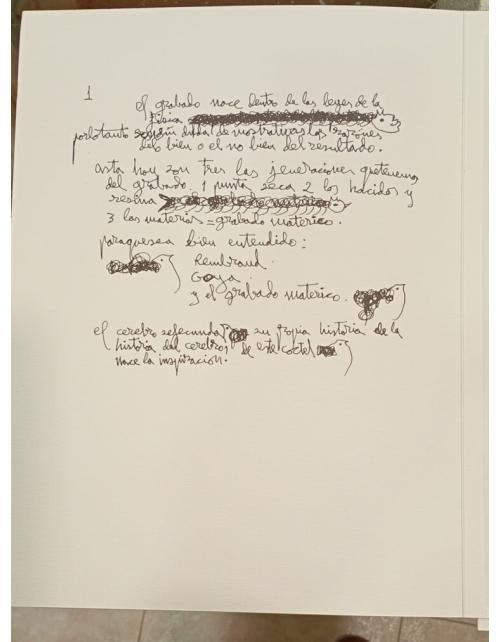 1
el grabado nace dentro de las leyes de la
fisica
porlotanto sin duda de mostrativas las razones
delo bien o el no bien del resultado.
asta hoy son tres las jeneraciones quetenemos
del grabado. 1 punta seca 2 los hacidos y
resina
3 las materias = grabado materico.
paraquesea bien entendido:
Rembrand.
Goya.
y el grabado materico.
el cerebro sefecunda su propia historia de la
historia del cerebro, de este coctel
nace la inspiracion.